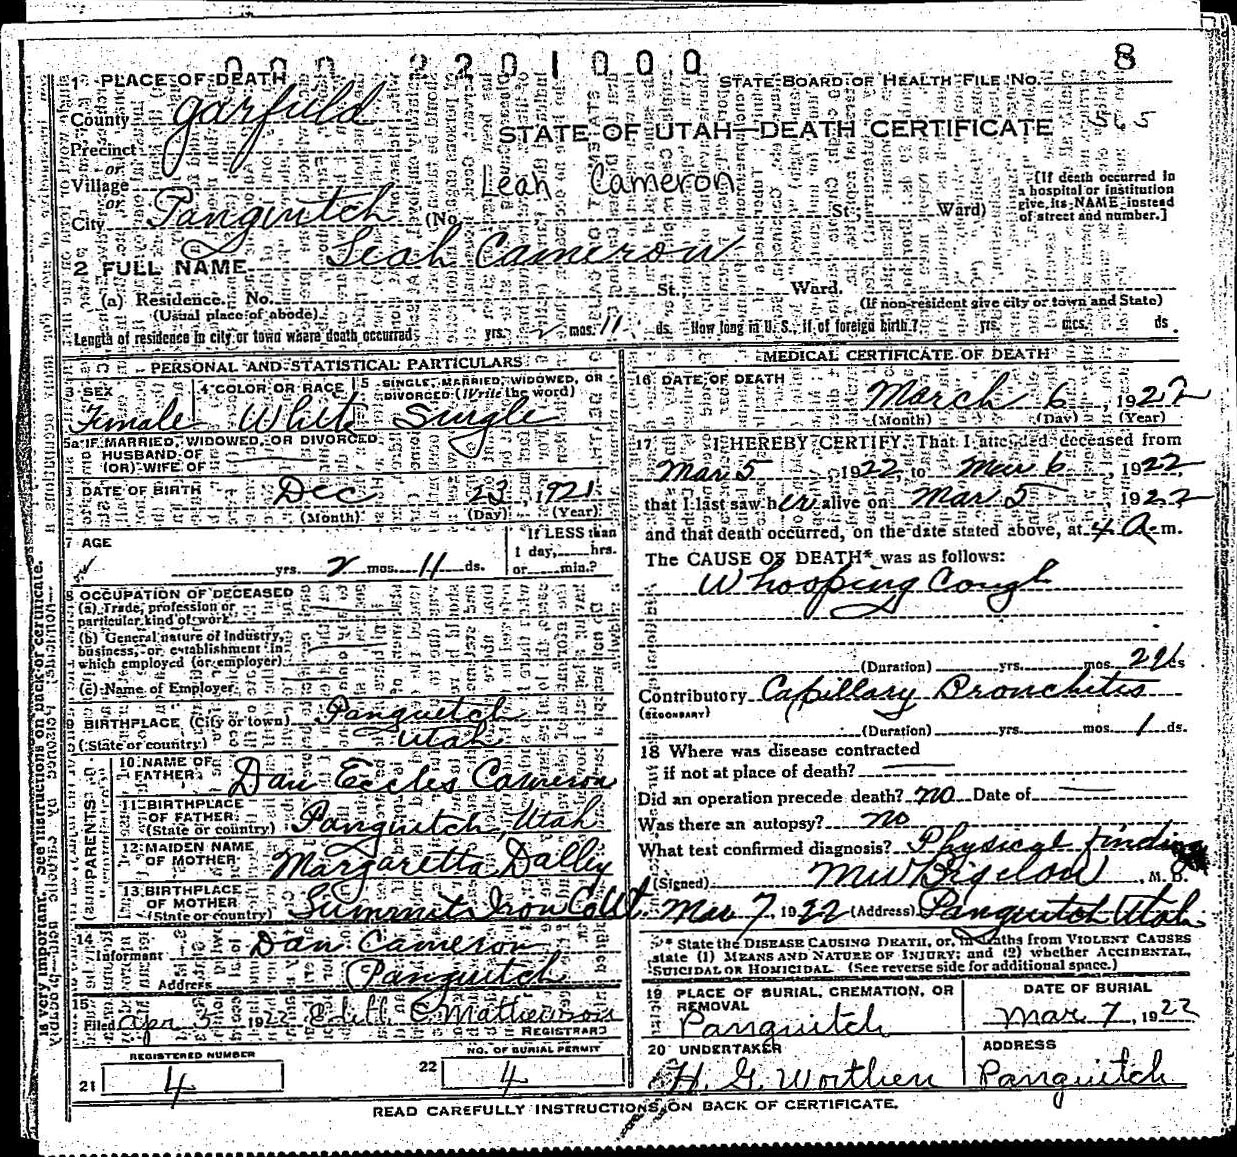 000 2201000 8
1 PLACE OF DEATH
STATE BOARD OF HEALTH FILE NO.
County Garfield
565
STATE OF UTAH—DEATH CERTIFICATE
Precinct
or
Village
Leah Cameron
[If death occurred in a hospital or institution give its NAME instead of street and number.]
or
City Panguitch (No. St.; Ward)
2 FULL NAME Leah Cameron
(a) Residence. No. St., Ward.
(Usual place of abode) (If non-resident give city or town and State)
Length of residence in city or town where death occurred yrs. 2 mos. 11 ds. How long in U. S., if of foreign birth? yrs. mos. ds.
PERSONAL AND STATISTICAL PARTICULARS
3 SEX
4 COLOR OR RACE
5 SINGLE, MARRIED, WIDOWED, OR DIVORCED (Write the word)
Female White Single
5a IF MARRIED, WIDOWED, OR DIVORCED
HUSBAND OF
(OR) WIFE OF
DATE OF BIRTH Dec 23 1921
(Month) (Day) (Year)
7 AGE
If LESS than
1 day, hrs.
or min.?
yrs. 2 mos. 11 ds.
OCCUPATION OF DECEASED
(a) Trade, profession or
particular kind of work
(b) General nature of industry,
business, or establishment in
which employed (or employer)
(c) Name of Employer
9 BIRTHPLACE (City or town) Panguitch
(State or country) Utah
PARENTS
10 NAME OF
FATHER Dan Eccles Cameron
11 BIRTHPLACE
OF FATHER
(State or country) Panguitch, Utah
12 MAIDEN NAME
OF MOTHER Margaretta Dalley
13 BIRTHPLACE
OF MOTHER
(State or country) Summit Iron Co Ut.
14
Informant Dan Cameron
Address Panguitch
15
Filed Apr 3 1922 Edith C Mathewson
REGISTRAR
REGISTERED NUMBER
21 4
NO. OF BURIAL PERMIT
22 4
MEDICAL CERTIFICATE OF DEATH
16 DATE OF DEATH
March 6, 1922
(Month) (Day) (Year)
17 I HEREBY CERTIFY, That I attended deceased from
Mar 5 1922, to Mar 6, 1922
that I last saw her alive on Mar 5, 1922
and that death occurred, on the date stated above, at 4 A m.
The CAUSE OF DEATH* was as follows:
Whooping Cough
(Duration) yrs. mos. 21 ds
Contributory Capillary Bronchitis
(SECONDARY)
(Duration) yrs. mos. 1 ds.
18 Where was disease contracted
if not at place of death?
Did an operation precede death? no Date of
Was there an autopsy? no
What test confirmed diagnosis? Physical finding
(Signed) MW Bigelow, M. D.
Mar 7, 1922 (Address) Panguitch Utah
* State the DISEASE CAUSING DEATH, or, in deaths from VIOLENT CAUSES
state (1) MEANS AND NATURE OF INJURY; and (2) whether ACCIDENTAL,
SUICIDAL OR HOMICIDAL. (See reverse side for additional space.)
19 PLACE OF BURIAL, CREMATION, OR
REMOVAL
Panguitch
DATE OF BURIAL
Mar 7, 1922
20 UNDERTAKER
H. G. Worthen
ADDRESS
Panguitch
READ CAREFULLY INSTRUCTIONS ON BACK OF CERTIFICATE.
is very important. See instructions on back of certificate.